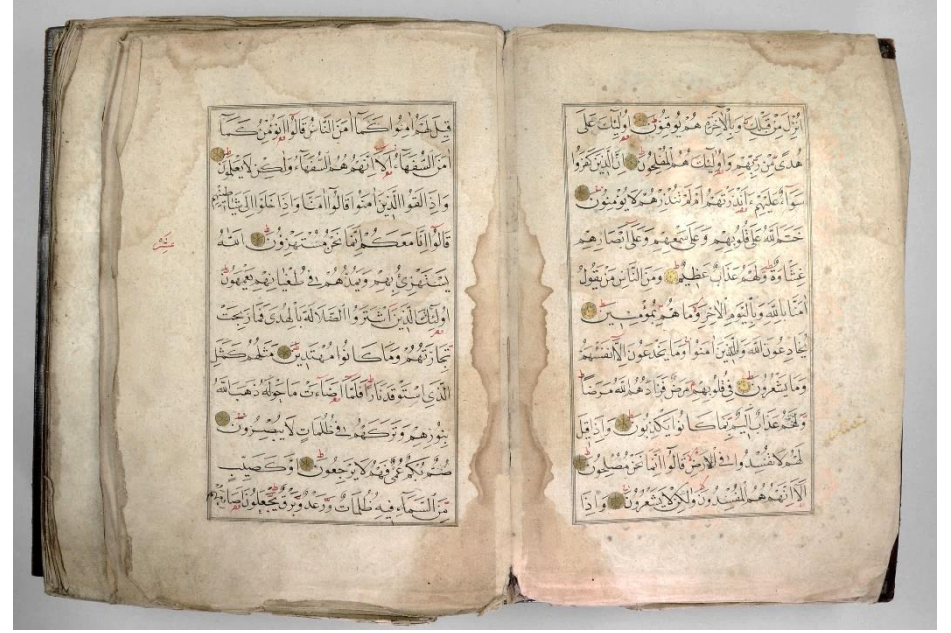 اُنْزِلَ مِنْ قَبْلِكَ وَبِالْاٰخِرَةِ هُمْ يُوقِنُونَ اُولٰٓئِكَ عَلٰى
هُدًى مِنْ رَبِّهِمْ وَاُولٰٓئِكَ هُمُ الْمُفْلِحُونَ اِنَّ الَّذِينَ كَفَرُوا
سَوَآءٌ عَلَيْهِمْ ءَاَنْذَرْتَهُمْ اَمْ لَمْ تُنْذِرْهُمْ لَا يُؤْمِنُونَ
خَتَمَ اللّٰهُ عَلٰى قُلُوبِهِمْ وَعَلٰى سَمْعِهِمْ وَعَلٰٓى اَبْصَارِهِمْ
غِشَاوَةٌ وَلَهُمْ عَذَابٌ عَظِيمٌ وَمِنَ النَّاسِ مَنْ يَقُولُ
اٰمَنَّا بِاللّٰهِ وَبِالْيَوْمِ الْاٰخِرِ وَمَا هُمْ بِمُؤْمِنِينَ
يُخَادِعُونَ اللّٰهَ وَالَّذِينَ اٰمَنُوا وَمَا يَخْدَعُونَ اِلَّا اَنْفُسَهُمْ
وَمَا يَشْعُرُونَ فِي قُلُوبِهِمْ مَرَضٌ فَزَادَهُمُ اللّٰهُ مَرَضًا
وَلَهُمْ عَذَابٌ اَلِيمٌ بِمَا كَانُوا يَكْذِبُونَ وَاِذَا قِيلَ
لَهُمْ لَا تُفْسِدُوا فِي الْاَرْضِ قَالُٓوا اِنَّمَا نَحْنُ مُصْلِحُونَ
اَلَٓا اِنَّهُمْ هُمُ الْمُفْسِدُونَ وَلٰكِنْ لَا يَشْعُرُونَ وَاِذَا
قِيلَ لَهُمْ اٰمِنُوا كَمَٓا اٰمَنَ النَّاسُ قَالُٓوا اَنُؤْمِنُ كَمَٓا
اٰمَنَ السُّفَهَآءُ اَلَٓا اِنَّهُمْ هُمُ السُّفَهَآءُ وَلٰكِنْ لَا يَعْلَمُونَ
وَاِذَا لَقُوا الَّذِينَ اٰمَنُوا قَالُٓوا اٰمَنَّا وَاِذَا خَلَوْا اِلٰى شَيَاطِينِهِمْ
قَالُٓوا اِنَّا مَعَكُمْ اِنَّمَا نَحْنُ مُسْتَهْزِؤُنَ اَللّٰهُ
يَسْتَهْزِئُ بِهِمْ وَيَمُدُّهُمْ فِي طُغْيَانِهِمْ يَعْمَهُونَ
اُولٰٓئِكَ الَّذِينَ اشْتَرَوُا الضَّلَالَةَ بِالْهُدٰى فَمَا رَبِحَتْ
تِجَارَتُهُمْ وَمَا كَانُوا مُهْتَدِينَ مَثَلُهُمْ كَمَثَلِ
الَّذِي اسْتَوْقَدَ نَارًا فَلَمَّٓا اَضَآءَتْ مَا حَوْلَهُ ذَهَبَ اللّٰهُ
بِنُورِهِمْ وَتَرَكَهُمْ فِي ظُلُمَاتٍ لَا يُبْصِرُونَ
صُمٌّ بُكْمٌ عُمْيٌ فَهُمْ لَا يَرْجِعُونَ اَوْ كَصَيِّبٍ
مِنَ السَّمَآءِ فِيهِ ظُلُمَاتٌ وَرَعْدٌ وَبَرْقٌ يَجْعَلُونَ اَصَابِعَهُمْ
عشر